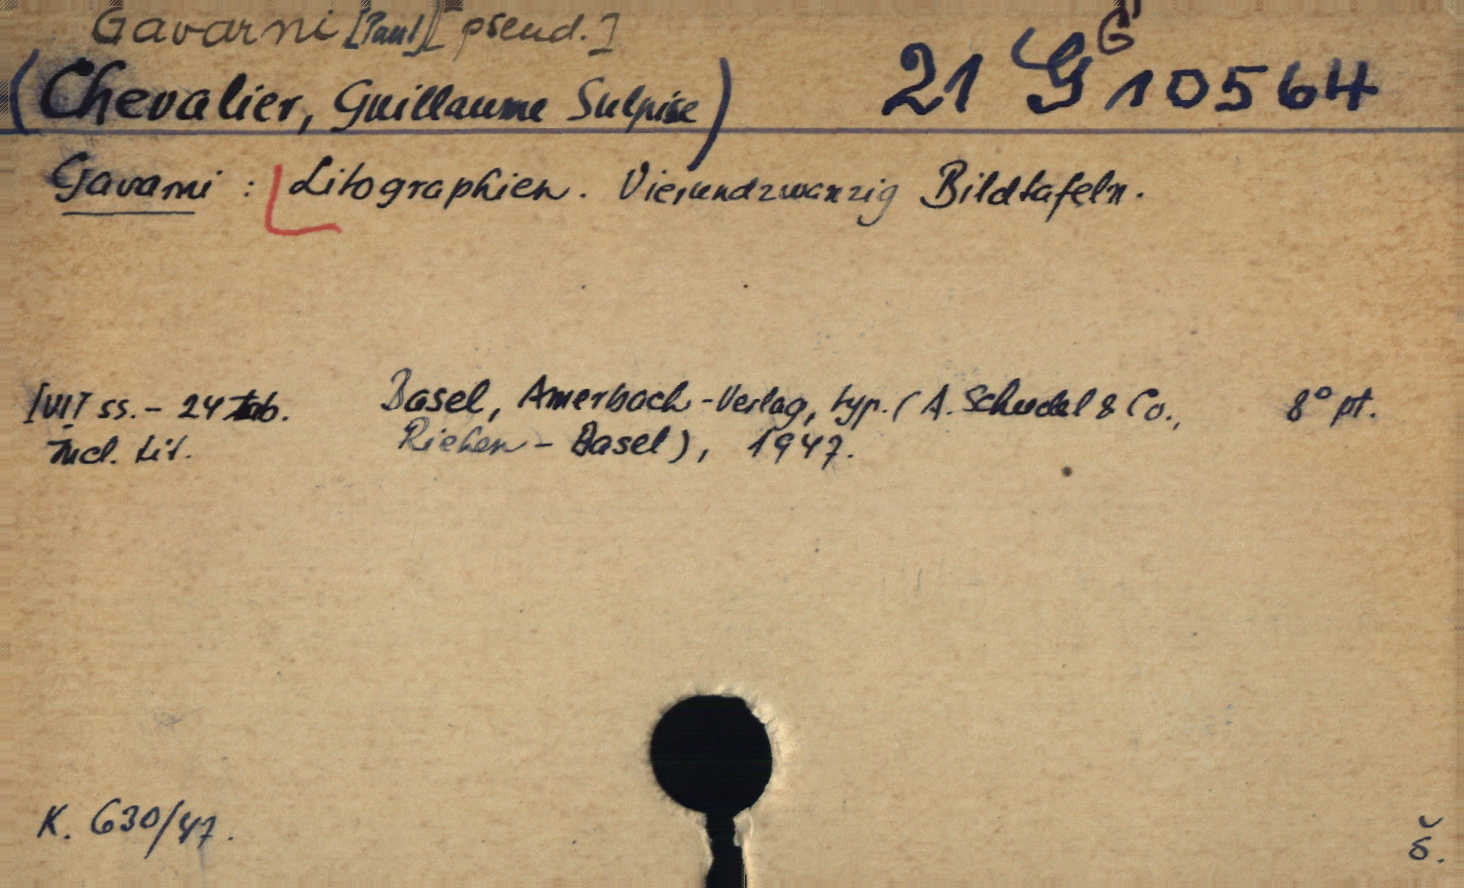 Gavarni [Paul] [pseud.]
(Chevalier, Guillaume Sulpice) 21 G 10564
G
Gavarni : Litographien. Vierundzwanzig Bildtafeln.
[VI] ss. - 24 tab. Basel, Amerbach-Verlag, typ. (A. Schudel & Co., 8° pt.
Incl. tit. Riehen - Basel), 1947.
K. 630/47. š.